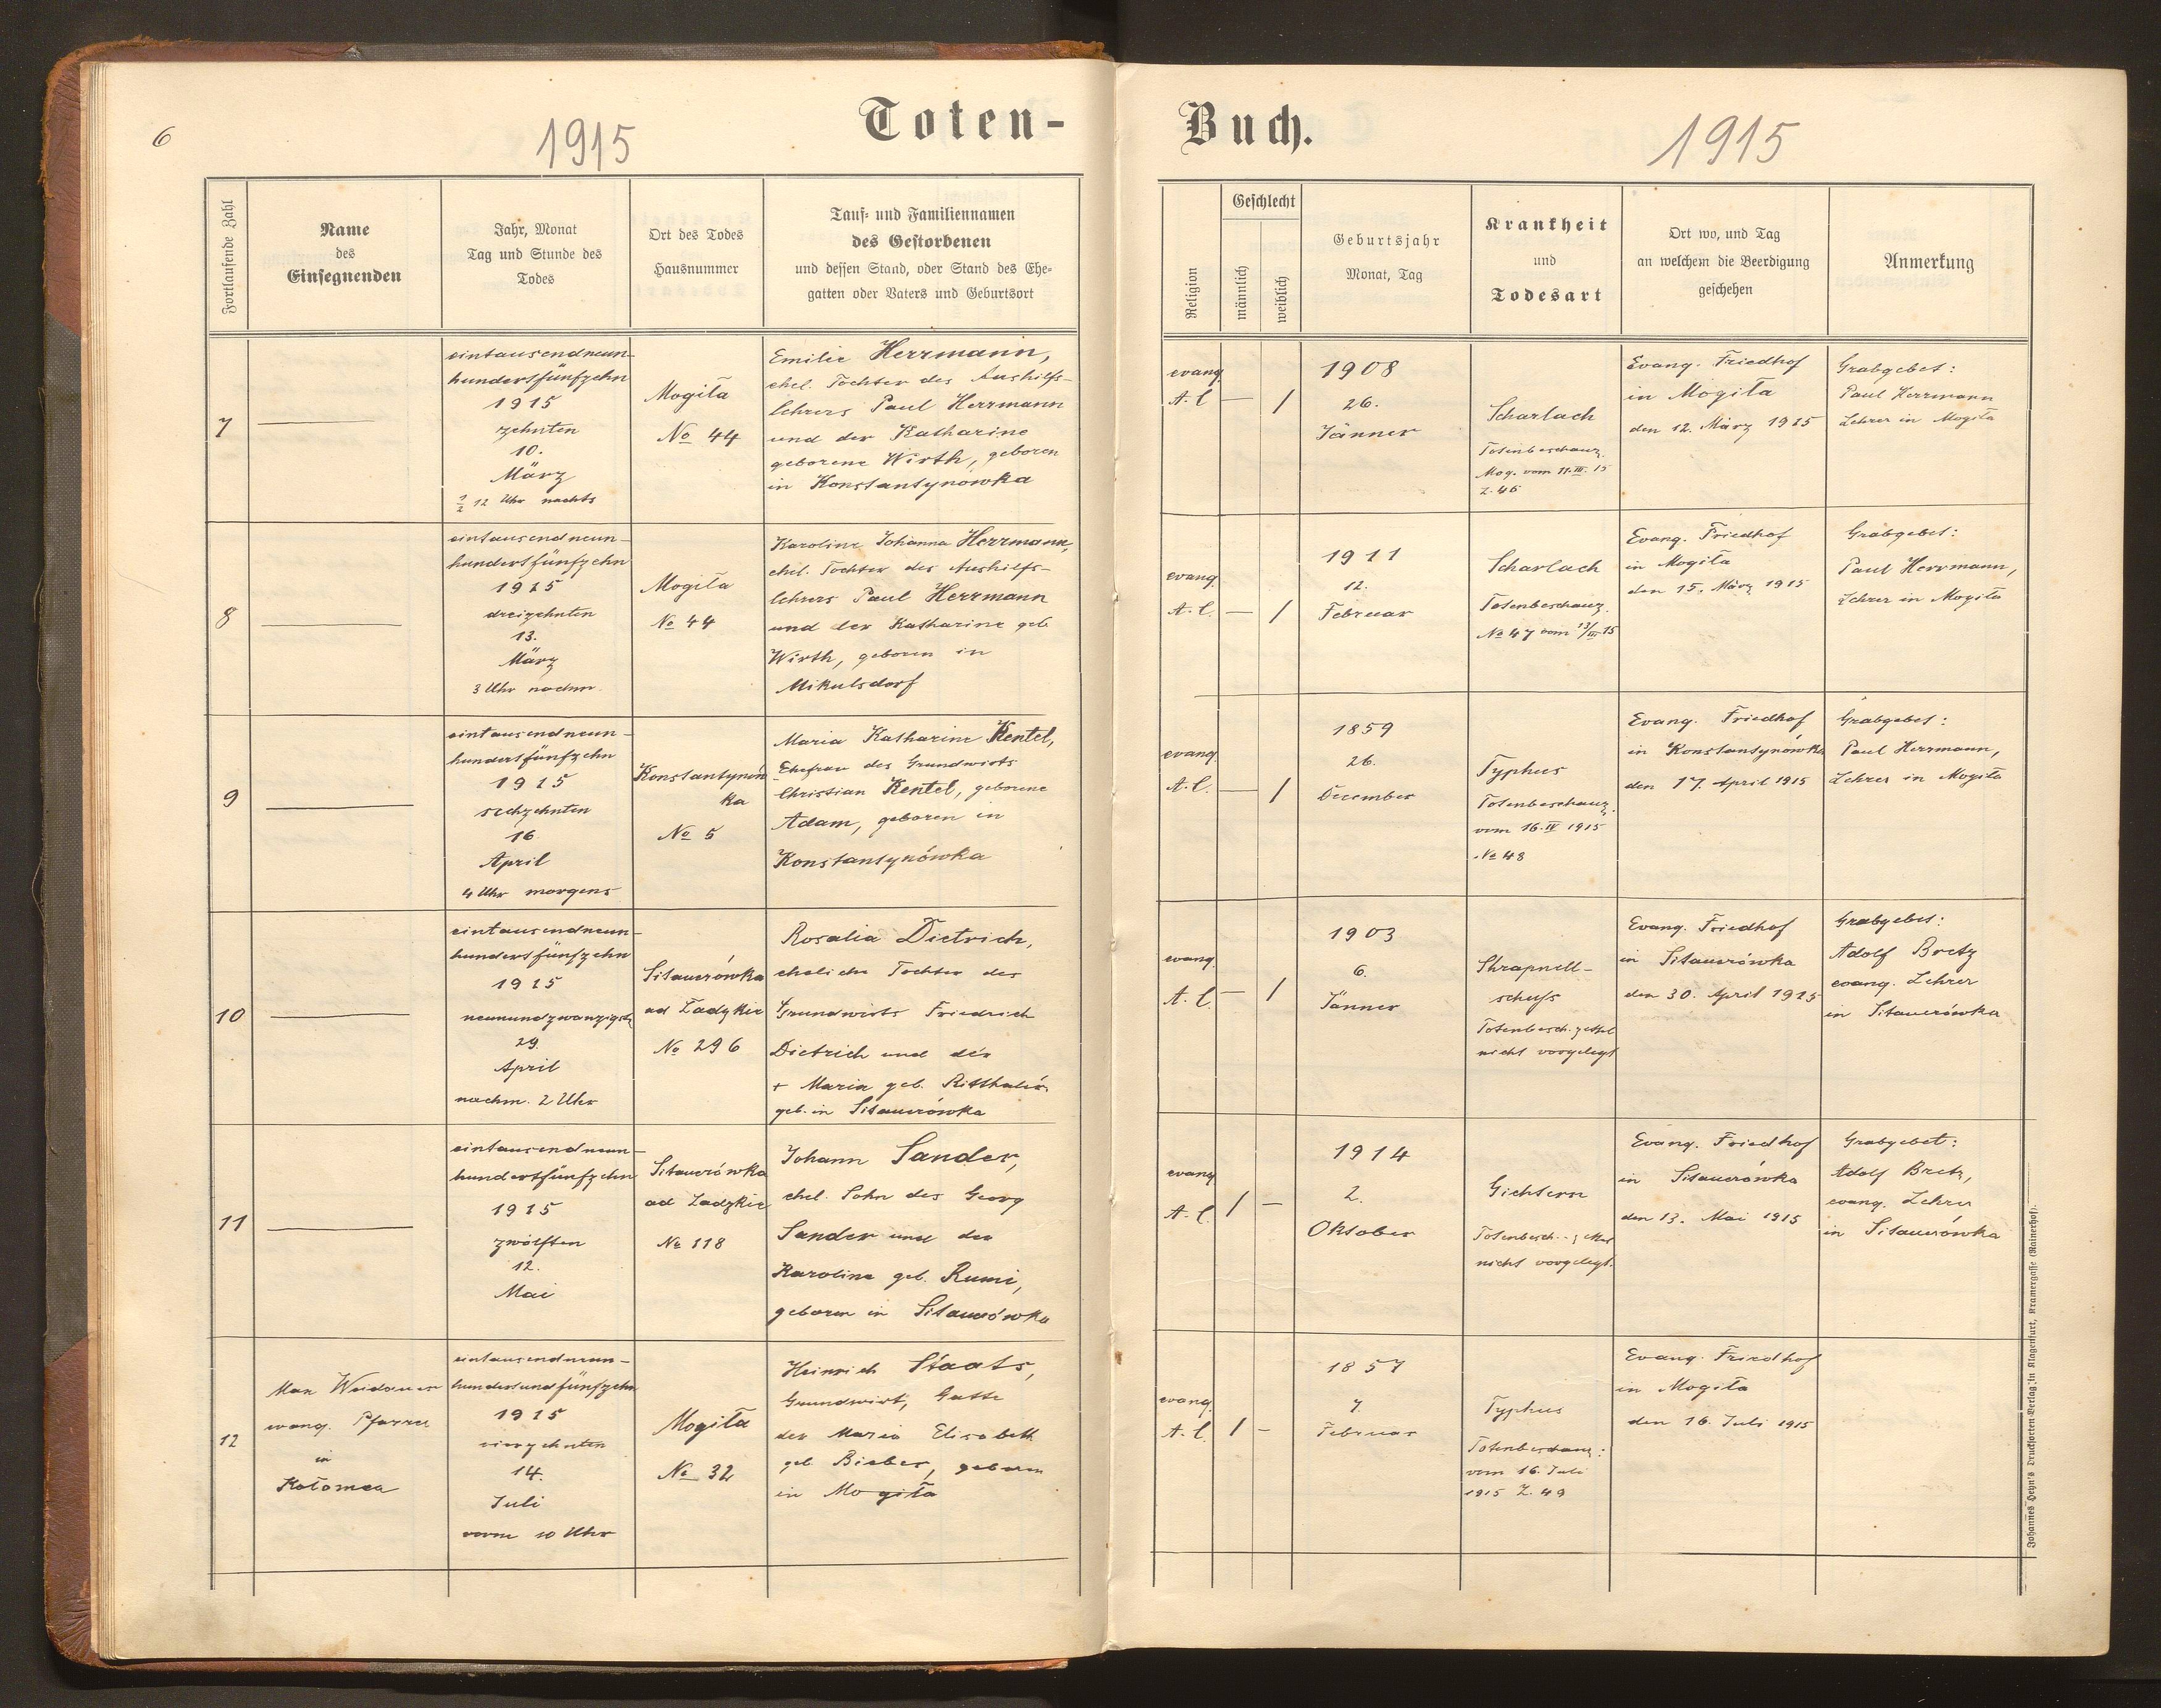 6
1915
Toten-
Buch.
1915
Fortlaufende Zahl
Name
des
Einsegnenden
Jahr, Monat
Tag und Stunde des
Todes
Ort des Todes
Hausnummer
Tauf- und Familiennamen
des Gestorbenen
und dessen Stand, oder Stand des Ehe-
gatten oder Vaters und Geburtsort
Religion
Geschlecht
männlich
weiblich
Geburtsjahr
Monat, Tag
Krankheit
und
Todesart
Ort wo, und Tag
an welchem die Beerdigung
geschehen
Anmerkung
7
eintausendneun-
hundertfünfzehn
1915
zehnten
10.
März
½ 12 Uhr nachts
Mogiła
No 44
Emilie Herrmann,
ehel. Tochter des Aushilfs-
lehrers Paul Herrmann
und der Katharine
geborene Wirth, geboren
in Konstantynówka
evang.
A. C. — /
1908
26.
Jänner
Scharlach
Totenbeschauz.
Mog. vom 11.III.15
Z. 46
Evang. Friedhof
in Mogiła
den 12. März 1915
Grabgebet:
Paul Herrmann
Lehrer in Mogiła
8
eintausendneun-
hundertfünfzehn
1915
dreizehnten
13.
März
3 Uhr nachm.
Mogiła
No 44
Karoline Johanna Herrmann,
ehel. Tochter des Aushilfs-
lehrers Paul Herrmann
und der Katharine geb.
Wirth, geboren in
Mikulsdorf
evang.
A. C. — /
1911
12.
Februar
Scharlach
Totenbeschauz.
No 47 vom 13/III 15
Evang. Friedhof
in Mogiła
den 15. März 1915
Grabgebet:
Paul Herrmann,
Lehrer in Mogiła
9
eintausendneun-
hundertfünfzehn
1915
sechzehnten
16.
April
4 Uhr morgens
Konstantynów
ka
No 5
Maria Katharine Kentel,
Ehefrau des Grundwirts
Christian Kentel, geborene
Adam, geboren in
Konstantynówka
evang.
A. C. — /
1859
26.
December
Typhus
Totenbeschauz.
vom 16.IV 1915
No 48
Evang. Friedhof
in Konstantynówka
den 17. April 1915
Grabgebet:
Paul Herrmann,
Lehrer in Mogiła
10
eintausendneun-
hundertfünfzehn
1915
neunundzwanzigst
29.
April
nachm. 2 Uhr
Sitauerówka
ad Zadykie
No 296
Rosalia Dietrich,
eheliche Tochter des
Grundwirts Friedrich
Dietrich und der
+ Maria geb. Ritthaler
geb. in Sitauerówka
evang.
A. C. — /
1903
6.
Jänner
Shrapnell-
schuss
Totenbesch. zettel
nicht vorgelegt
Evang. Friedhof
in Sitauerówka
den 30. April 1915
Grabgebet:
Adolf Bretz
evang. Lehrer
in Sitauerówka
11
eintausendneun-
hundertfünfzehn
1915
zwölften
12.
Mai
Sitauerówka
ad Zadykie
No 118
Johann Sander,
ehel. Sohn des Georg
Sander und der
Karoline geb. Rumi,
geboren in Sitauerówka
evang.
A. C. / —
1914
2.
Oktober
Gichtern
Totenbesch.
nicht vorgelegt.
Evang. Friedhof
in Sitauerówka
den 13. Mai 1915
Grabgebet:
Adolf Bretz,
evang. Lehrer
in Sitauerówka
12
Max Weidauer
evang. Pfarrer
in
Kołomea
eintausendneun-
hundertundfünfzehn
1915
vierzehnten
14.
Juli
vorm 10 Uhr
Mogiła
No 32
Heinrich Staats,
Grundwirt, Gatte
der Maria Elisabeth
geb. Bieber, geboren
in Mogiła
evang.
A. C. / -
1857
7.
Februar
Typhus
Totenbeschauz:
vom 16. Juli
1915 Z. 49
Evang. Friedhof
in Mogiła
den 16. Juli 1915
Johannes Heyn's Drucksorten-Verlag in Klagenfurt, Kramergasse (Rainerhof).